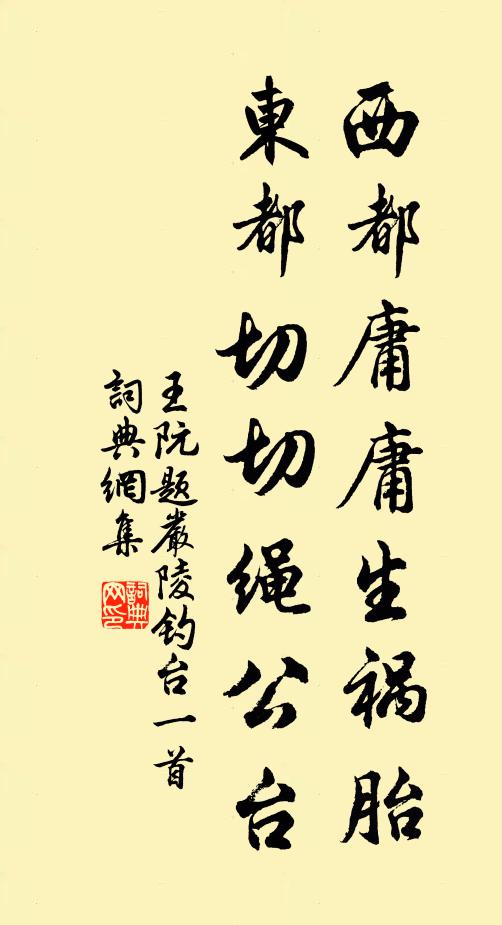 西都庸庸生祸胎
東都切切绳公台
王阮题嚴陵钓台一首
詞典網集
詞典网印